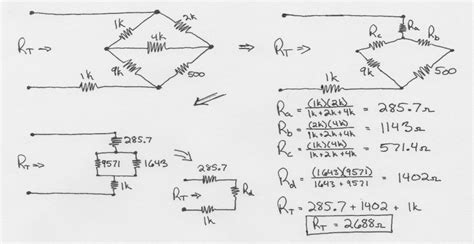 1k
2k
R_T ⇒
4k
9k
500
1k
⇒
R_T ⇒
R_c
R_a
R_b
9k
500
1k
R_T ⇒
285.7
9571
1643
1k
285.7
R_T ⇒
R_d
1k
R_a = (1k)(2k) / 1k+2k+4k = 285.7Ω
R_b = (2k)(4k) / 1k+2k+4k = 1143Ω
R_c = (1k)(4k) / 1k+2k+4k = 571.4Ω
R_d = (1643)(9571) / 1643 + 9571 = 1402Ω
R_T = 285.7 + 1402 + 1k
R_T = 2688Ω